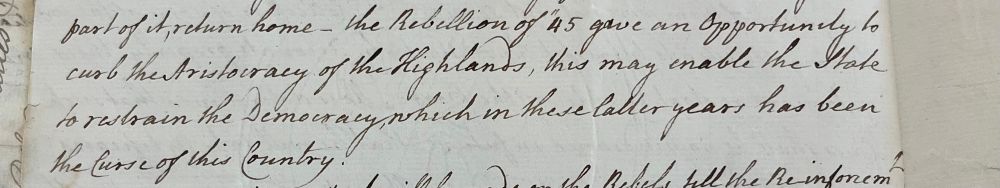 part of it, return home – the Rebellion of "45 gave an Opportunity to
curb the Aristocracy of the Highlands, this may enable the State
to restrain the Democracy, which in these latter years has been
the Curse of this Country.
on the Rebels till the Re-inforcemt